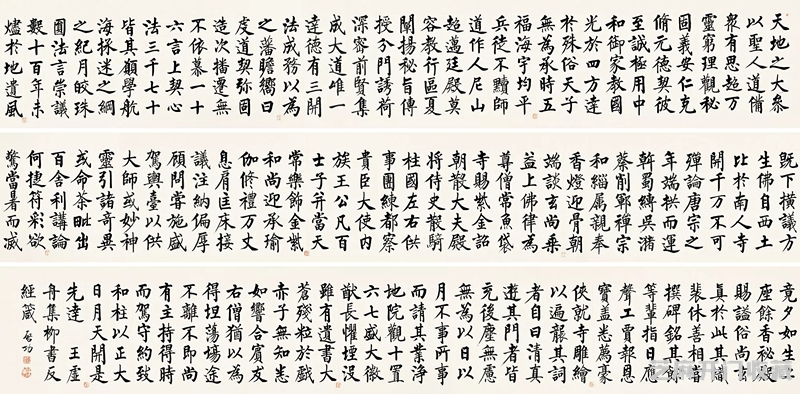 天地之大衆
以聖人道備
衆有思起万
靈窮理觀秘
固義安仁克
脩元德契彼
至誠極用中
和御家教國
光於四方達
於殊俗天子
無為承時五
福海宇均平
兵徒不黷師
道作人尼山
超邁廷殿莫
容教行區夏
闡揚秘旨傳
授分門誘荷
深容前賢集
成大道唯一
達德有三開
法成務以為
之藩瞻嚮曰
虔道契弥固
造次播遷無
不依慕一十
六言上契心
法三千七十
皆其願學航
海採迷之綱
之紀月皎珠
圓法言崇議
數十百年未
燼於地遺風
既下橫議方
生佛自西土
比於南人寺
開千万不可
殫論唐宗之
年端拱而運
斡蜀縛吳潛
蔡削鄆禪宗
和緇属親奉
香燈迎骨朝
端談玄尚乘
益上佛律為
尊僧常魚袋
寺賜紫金詔
朝散大夫殿
將侍史散騎
柱國左右供
事團練都察
貴臣大使内
族王公凡百
士子并當天
常樂飾金紫
和尚迎承瑜
伽修禮万丈
息肩匡床接
議注納偏厚
顧問嘗施盛
駕輿臺以供
大師或妙神
靈引諸奇異
或命荼毗出
百舍利講論
何捷符采欲
驚當暑而减
竟夕如生即
座餘香秘藏
賜謚俗尚玄
真於此其蕭
裴休善相等
撰碑銘其跡
等輩指日應
聲工賈報恩
寶蓋悉萬豪
俠就寺雕繪
以遍襲其詞
者自曰清真
遊其門者皆
充後塵無慮
無為以日以
月不事所事
而請其業淨
地院觀十置
六七盛大徽
猷長懼堙没
雖有遺書大
蒼殘粒於戲
赤子無知悉
如響合賓友
右僧猶以為
得坦蕩場途
不離不即尚
有主持得時
而駕守約致
和柱以正大
日月天開是
先達 王虛
舟集柳書反
經箴 启功